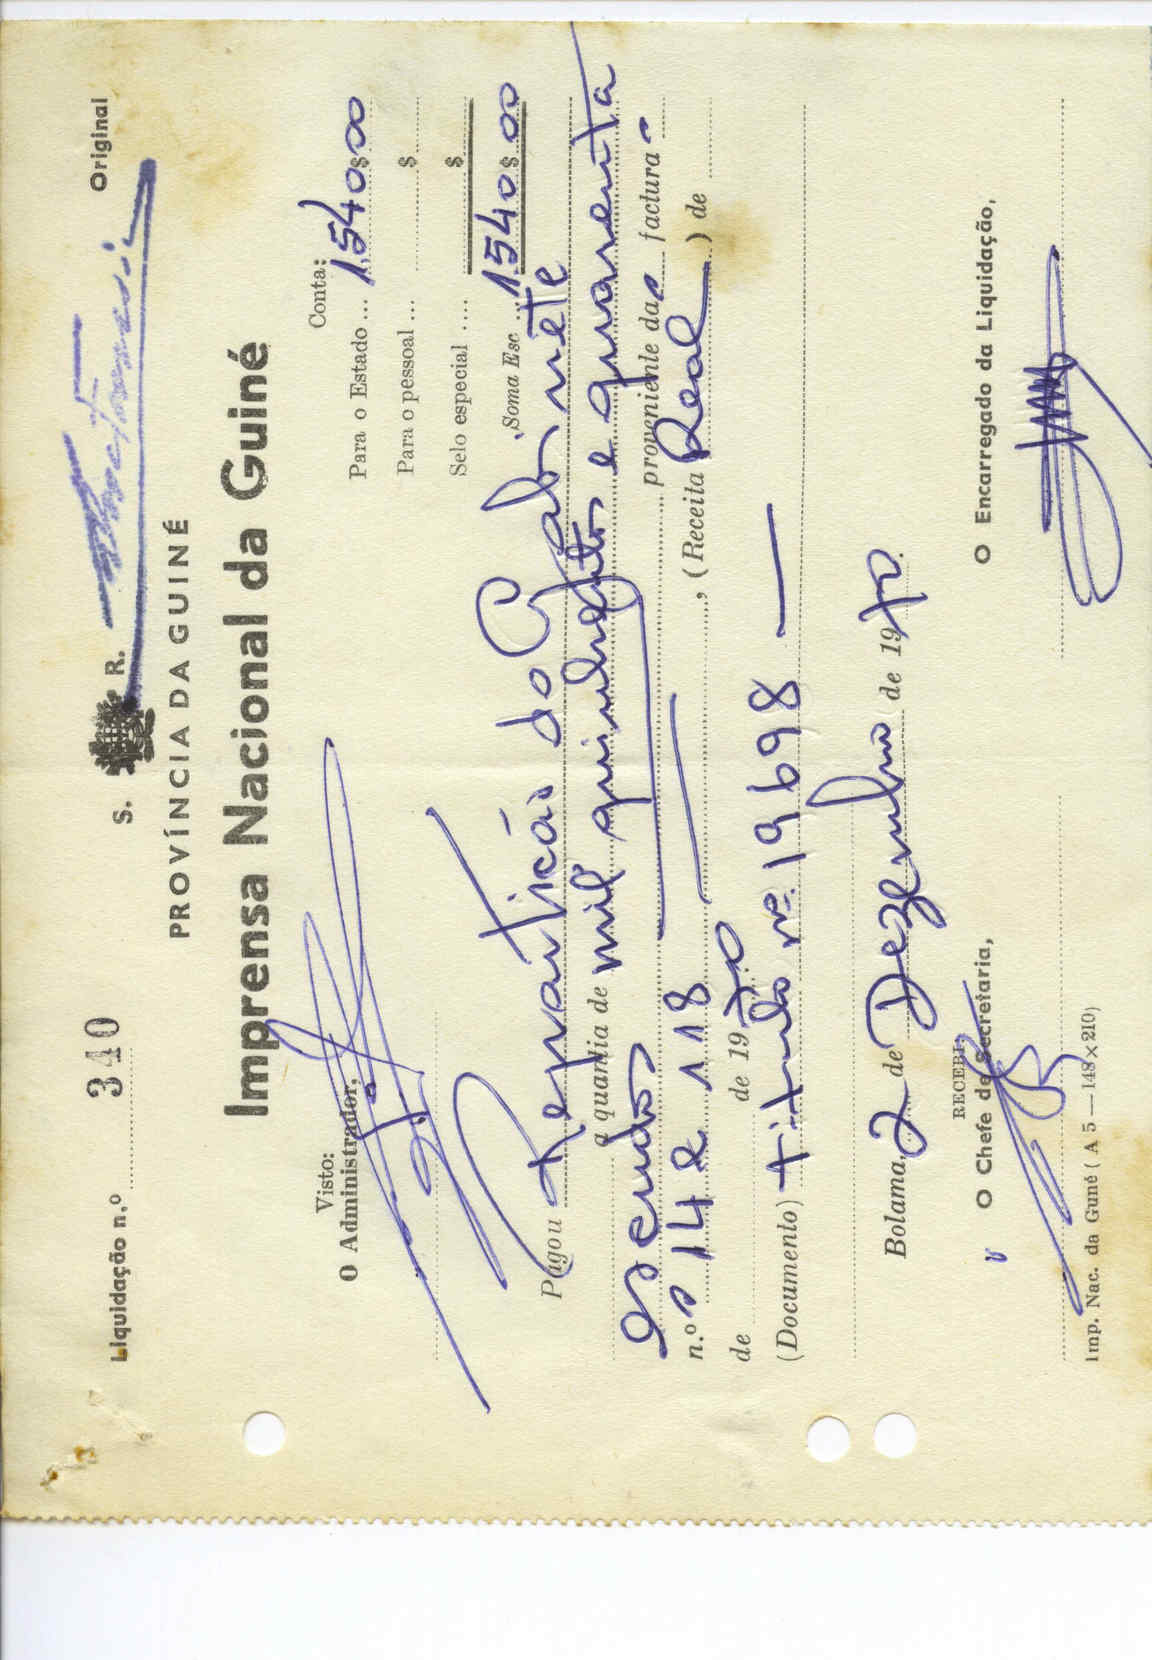 Liquidação n.º 340
S. R.
Original
PROVÍNCIA DA GUINÉ
Imprensa Nacional da Guiné
Visto:
O Administrador,
Conta:
Para o Estado ... 1.540$00
Para o pessoal ... $
Selo especial .... $
Soma Esc ... 1.540$00
Pagou Repartição do Gabinete
a quantia de mil quinhentos e quarenta
escudos proveniente das factura s
n.º s 142 118, (Receita Real) de
de de 1970
(Documento) titulo nº. 19698
Bolama, 2 de Dezembro de 1970.
RECEBI,
O Chefe de Secretaria,
O Encarregado da Liquidação,
Imp. Nac. da Guné ( A 5 — 148×210)